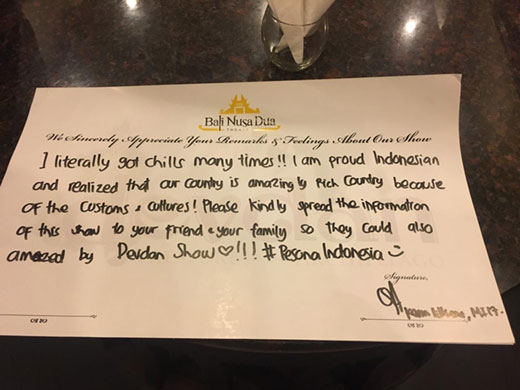 Bali Nusa Dua
THEATRE
We Sincerely Appreciate Your Remarks & Feelings About Our Show
I literally got chills many times!! I am proud Indonesian
and realized that our country is amazingly Rich Country because
of the Customs & cultures! Please kindly spread the information
of this show to your friend & your family so they could also
amazed by Devdan Show♡!!! #PesonaIndonesia
Signature,